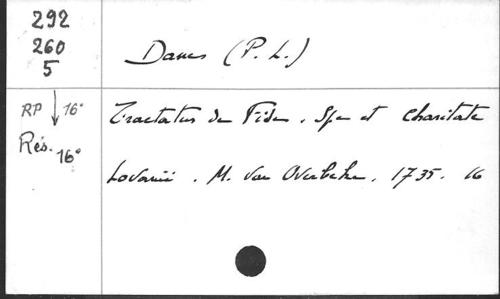 292
260
5
Danes (P. L.)
RP ↓ 16°
Rés. 16°
Tractatus de Fide, Spe et Charitate
Lovanii. M. Van Overbeke, 1735. 16